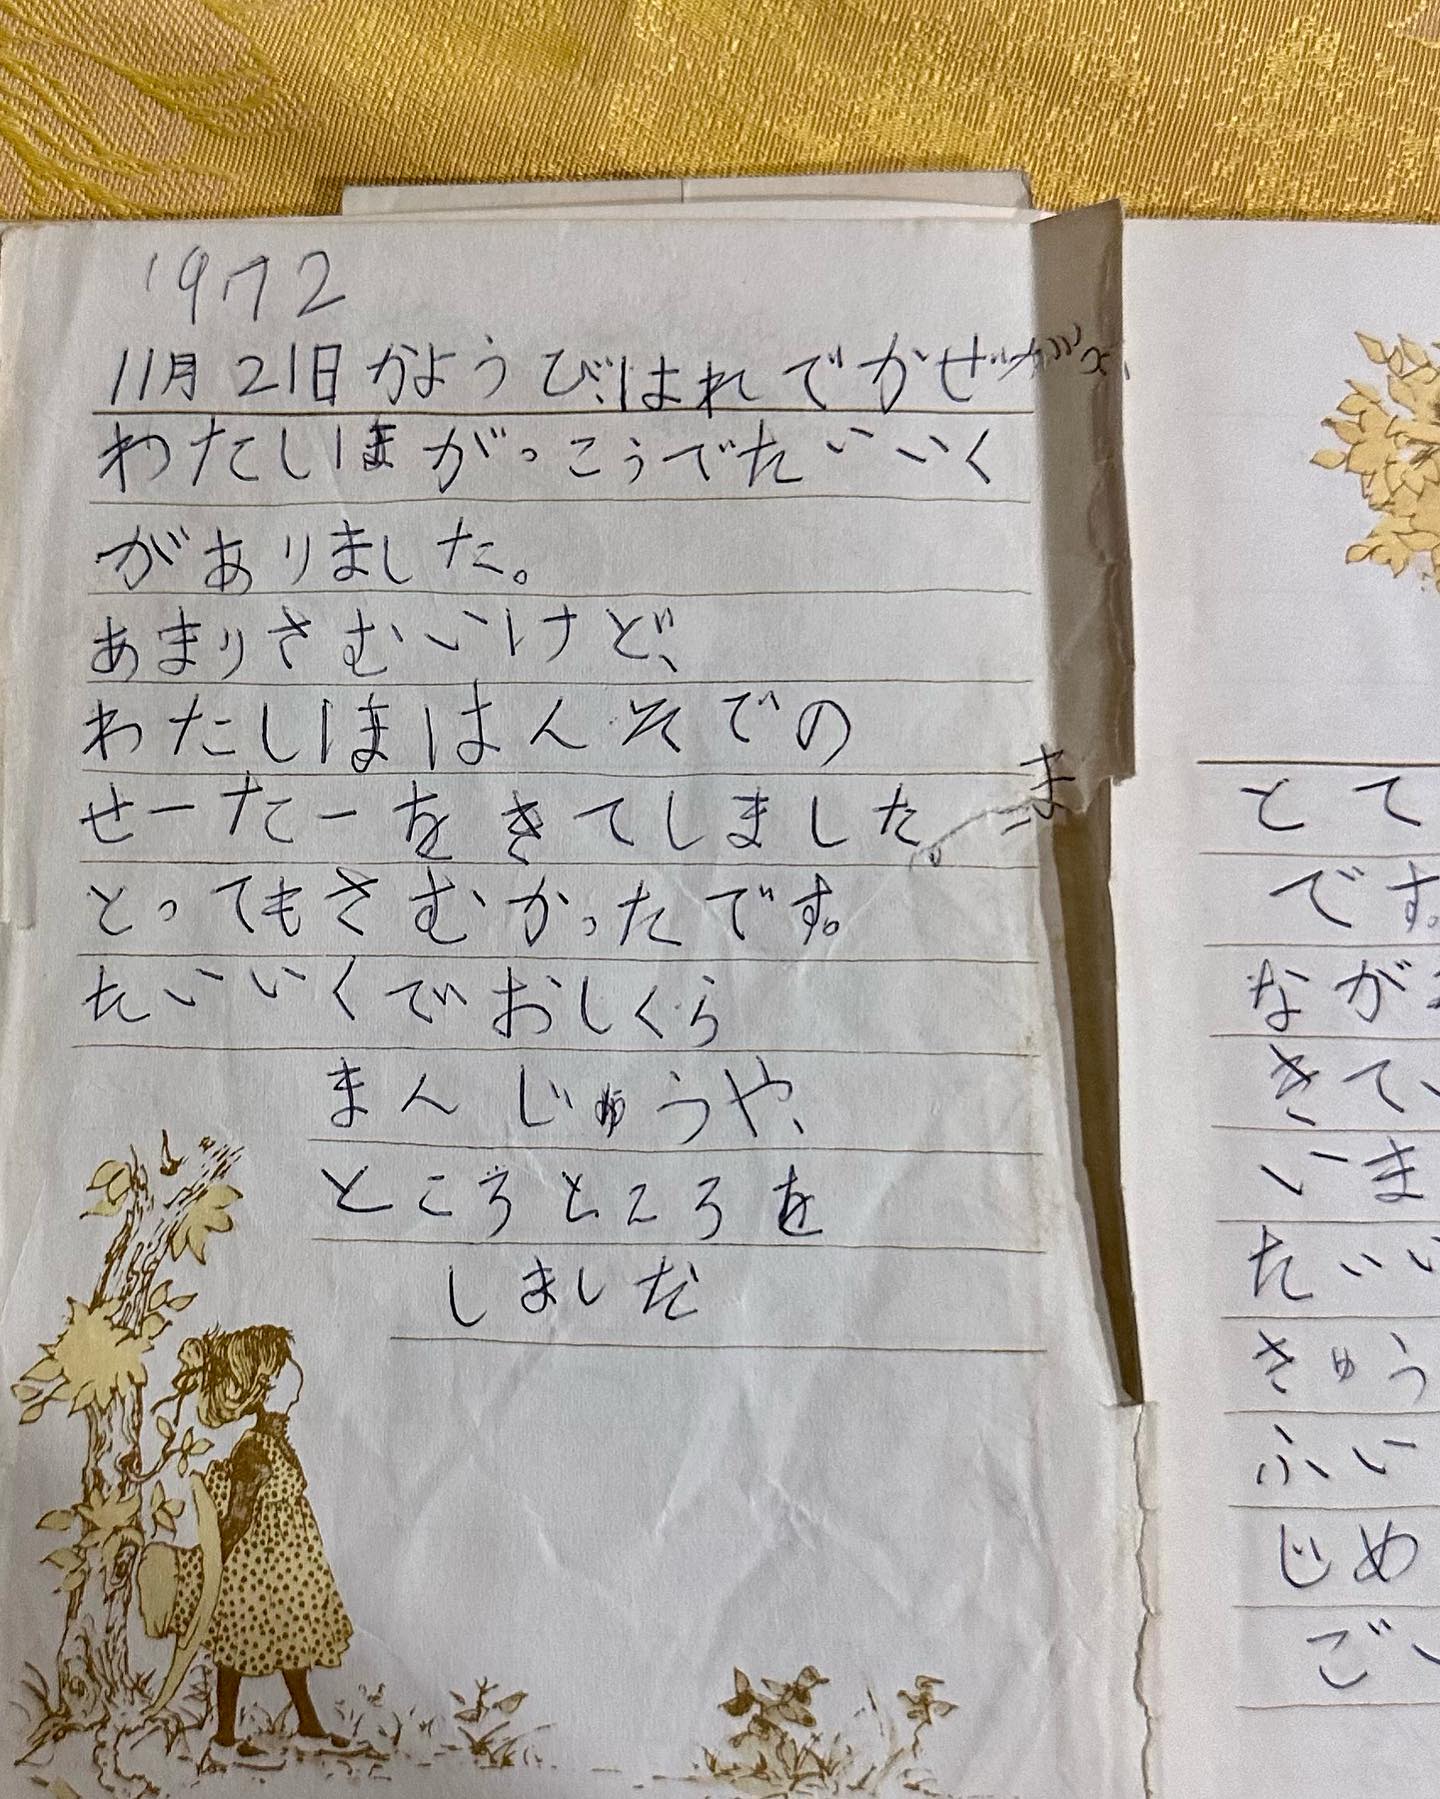 '972
11月21日かようび、はれでかぜが
わたしはがっこうでたいいく
がありました。
あまりさむいけど、
わたしははんそでの
せーたーをきてしました。
ま
とってもさむかったです。
たいいくでおしくら
まんじゅうや、
ところところを
しましだ
とて
です。
ながそ
きてい
いま
たいい
きゅう
ふい
じめ
ごい